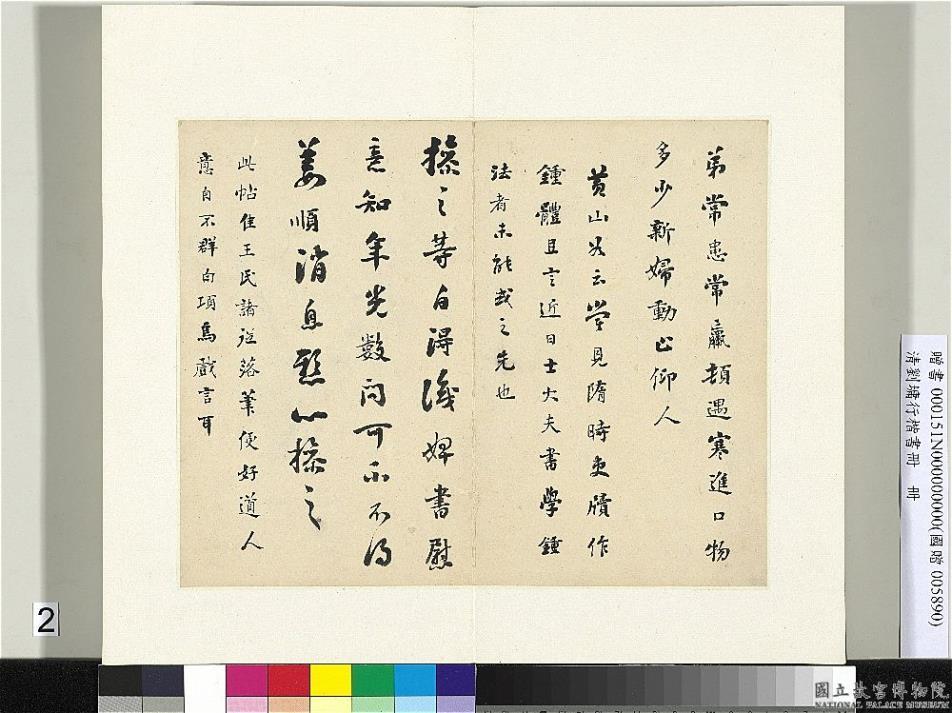 弟常患常羸頓遇寒進口物
多少新婦動止仰人
黃山谷云嘗見隋時吏牘作
鍾體且言近日士大夫書學鍾
法者未能或之先也
操之等白得識婢書慰
意知年光數問可不不得
姜順消息懸心操之
此帖佳王氏諸從落筆便好道人
意自不群白項烏戲言耳
贈書 000151N000000000(國贈 005890)
清劉墉行楷書冊 冊
2
國立故宮博物院
NATIONAL PALACE MUSEUM